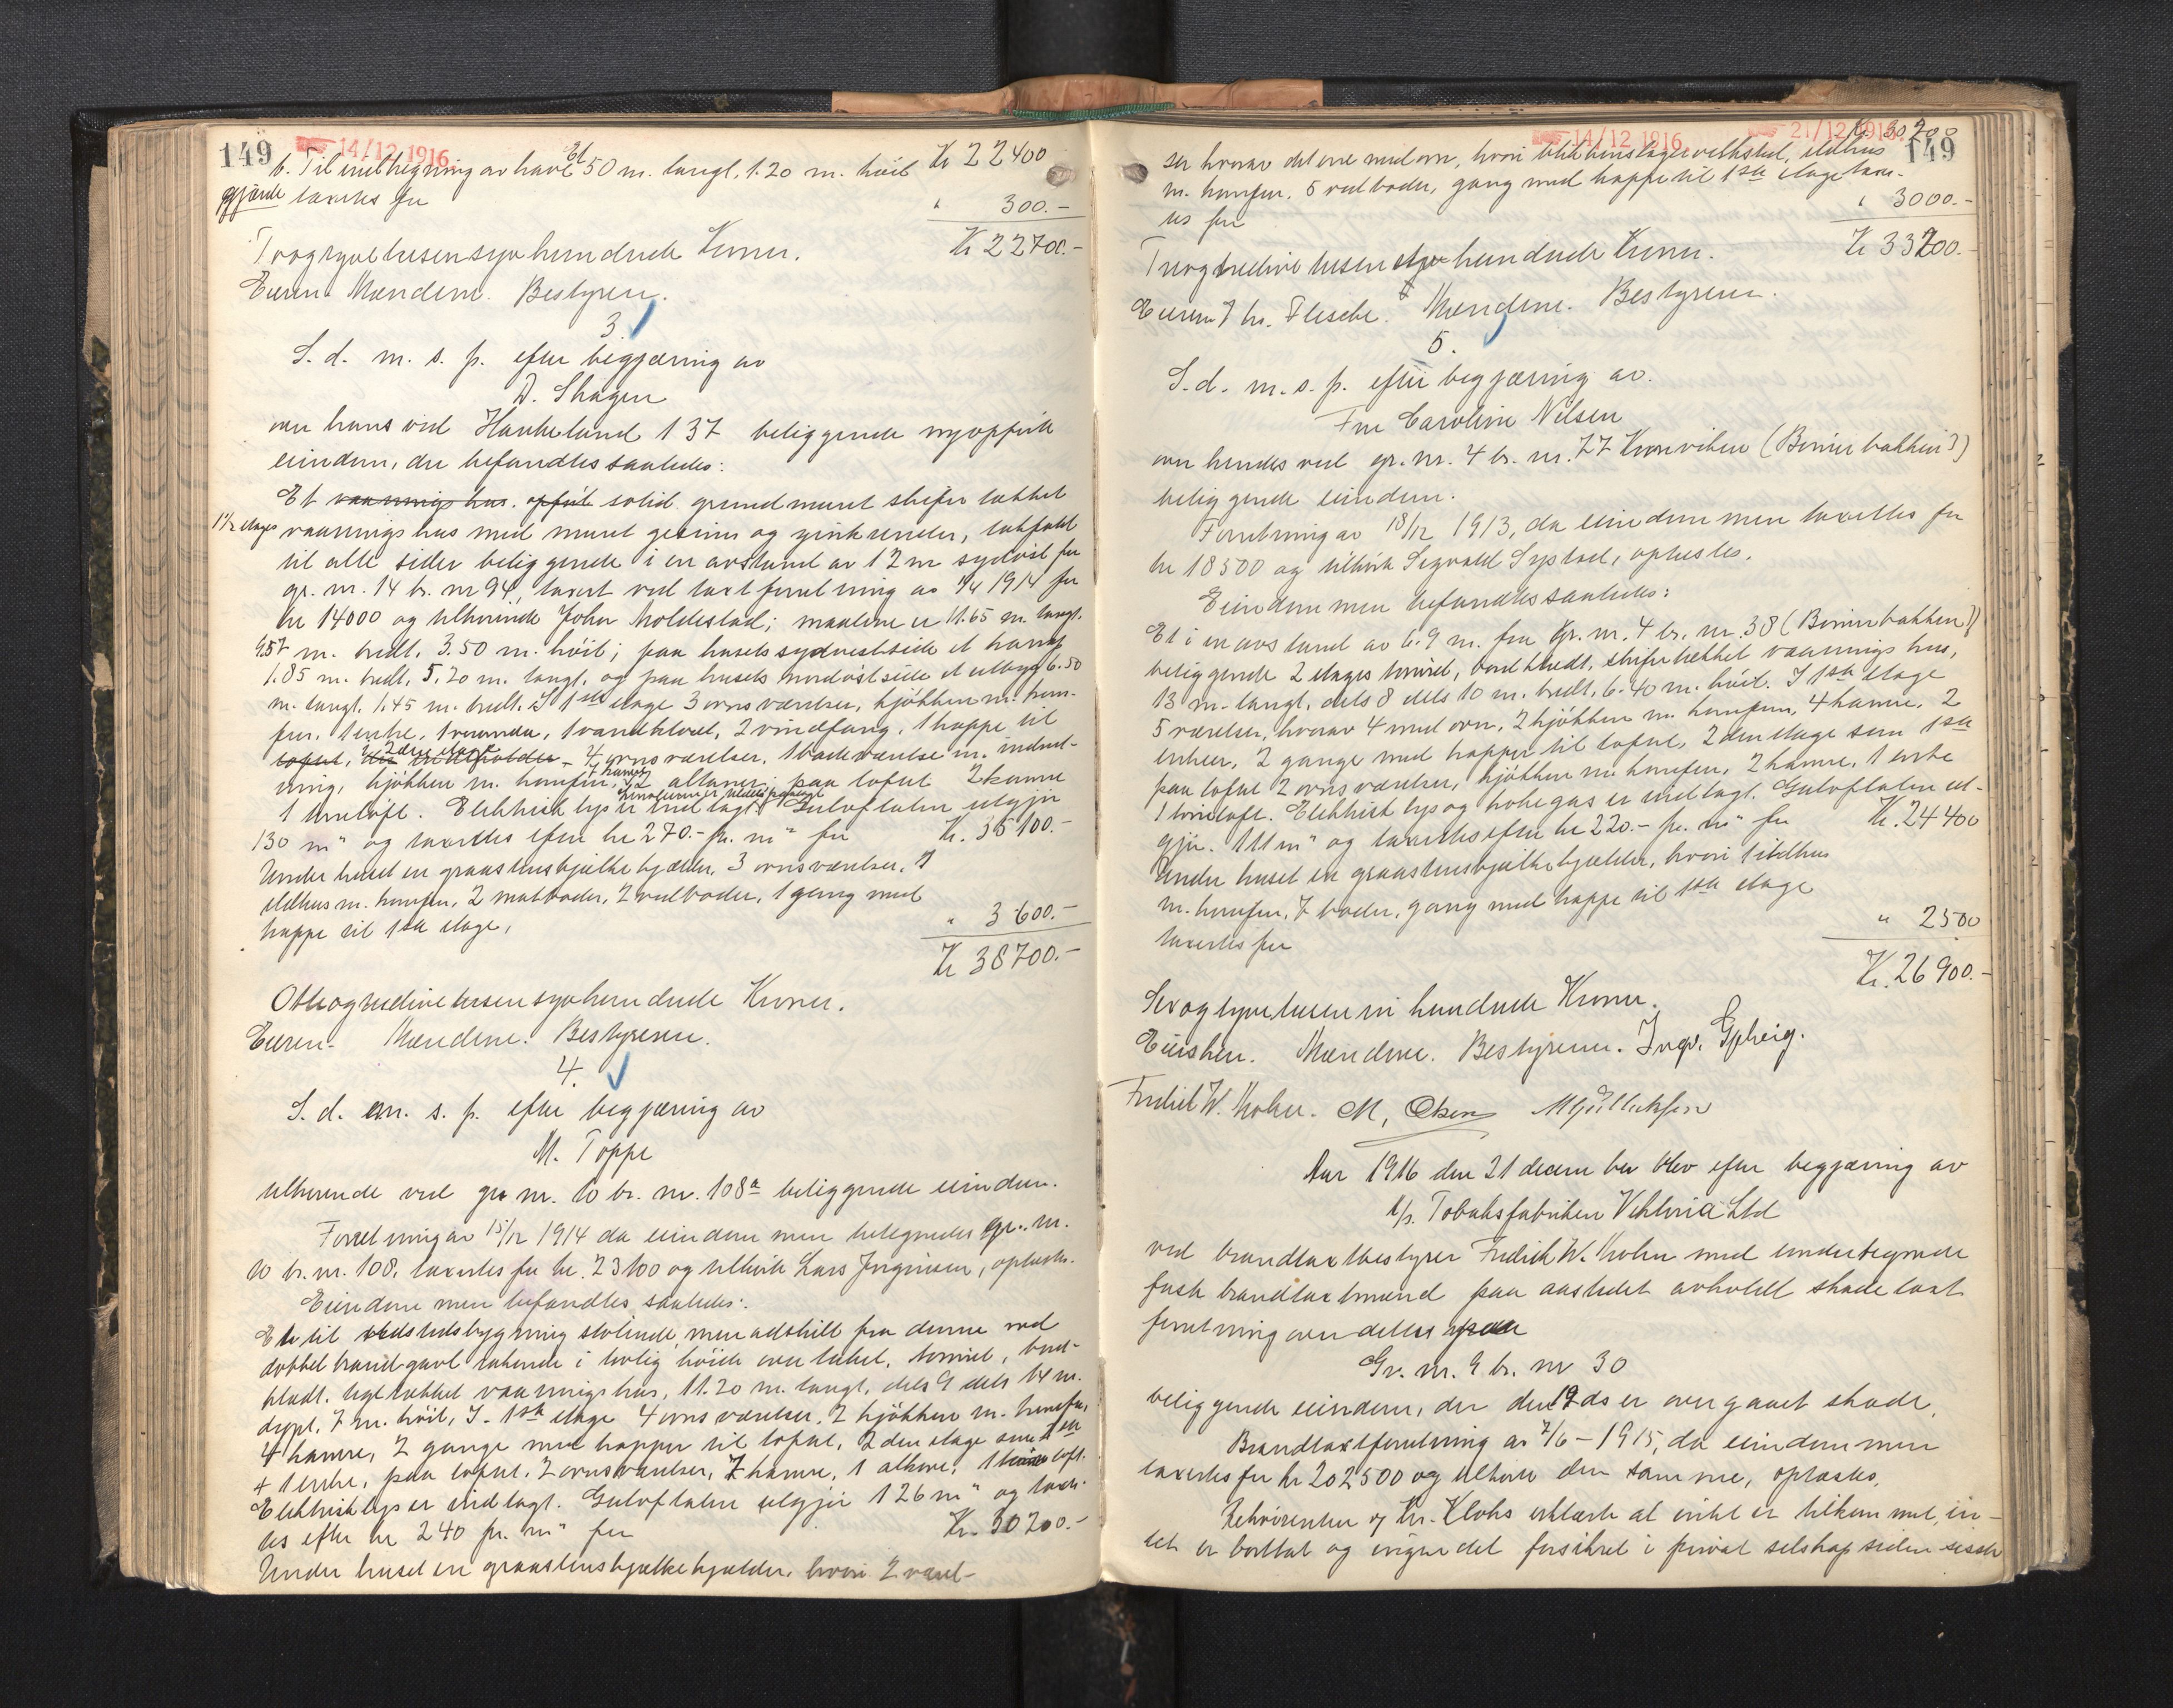 149
14/12 1916
b. Til indhegning av have Et 50 m. langt, 1.20 m. höit Kr 22400
gjærde taxertes for " 300.-
Toogtyvetusensyvhundrede Kroner. Kr 22700.-
Eieren. Mændene. Bestyreren.
3.
S. d. m. s. p. efter begjæring av
D. Skagen
over hans ved Haukeland 137 beliggende nyopförte
eiendom, der befandtes saaledes:
Et vaanings hus. opfört solid grundmuret skifertækket
1 1/2 etages vaanings hus med muret gesims og zinkrender, takfald
til alle sider beliggende i en avstand av 12 m sydöst for
gr. nr. 14 br. nr 94, taxert ved taxtforretning av 1914 for
kr 14000 og tilhörende John Moldestad; maalene er 11.65 m. langt.
9.57 m. bredt. 3.50 m. höit; paa husets sydvestside et
1.85 m. bredt, 5.20 m. langt, og paa husets nordöstside et utbygg 6.50
m. langt, 1.45 m. bredt. I 1ste etage 3 ovnsværelser, kjökken m. kom-
fur, 1 entre, 1 veranda, 1 vandklosel, 2 vindfang, 1 trappe til
loftet, 2den etage 4 ovnsværelser, 1 badeværelse m. indret-
ning, kjökken m. komfur, 1 kamer, 2 altaner; paa loftet 2 kamre
1 törreloft. Elektrisk lys er indlagt. Gulvflaten utgjör
130 m² og taxertes efter kr 270.- pr. m² for Kr. 35100.-
Under huset en graastensbjælkekjælder, 3 ovnsværelser, 1
ildhus m. komfur, 2 matboder, 2 vedboder, 1 gang med
trappe til 1ste etage, " 3600.-
Kr 38700.-
Otteogtredivetusensyvhundrede Kroner.
Eieren. Mændene. Bestyreren.
4.
S. d. m. s. p. efter begjæring av
M. Toppe
tilhörende ved gr. nr. 10 br. nr. 108a beliggende eiendom.
Forretning av 15/12 1914 da eiendommen betegnedes gr. nr.
10 br. nr. 108, taxertes for kr. 23100 og tilhörte Lars Jörginsen, oplæstes.
Eiendommen befandtes saaledes:
Et til stötende men adskilt fra denne ved
dobbel brandgavl rakende i lovlig höide over taket, tömret, bord-
klædt, tegltækket vaaningshus, 11.20 m. langt, dels 9 dels 14 m.
dypt, 7 m. höit, I 1ste etage 4 ovnsværelser, 2 kjökken m. komfur,
4 kamre, 2 gange med trapper til loftet, 2den etage som 1ste
+ 1 entre, paa loftet 2 ovnsværelser, 7 kamre, 1 alkove, 1 törreloft.
Elektrisk lys er indlagt. Gulvflaten utgjör 126 m² og taxer-
tes efter kr 240 pr. m² for Kr. 30200.-
Under huset en graastensbjælkekjælder, hvori 2 værel-
14/12 1916. 21/12 1916.
149
Kr. 30200
ser hvorav det ene med ovn, hvori blikkenslagerverksted, ildhus
m. komfur, 5 vedboder, gang med trappe til 1ste etage taxer-
tes for " 3000.-
Kr 33200.-
Treogtredivetusen hundrede Kroner.
Eieren Mændene. Bestyreren.
5.
S. d. m. s. p. efter begjæring av.
Fru Caroline Nilsen
over hendes ved gr. nr. 4 br. nr. 77 Kronviken (Birnerbakken)
beliggende eiendom.
Forretning av 18/12 1913, da eiendommen taxertes for
kr 18500 og tilhörte Sigvald Systad, oplæstes.
Eiendommen befandtes saaledes:
Et i en avstand av 6.9 m. fra gr. nr. 4 br. nr. 38 (Birnerbakken)
beliggende 2 etages tömret, bordklædt, skifertækket vaanings hus,
13 m. langt, dels 8 dels 10 m. bredt, 6.40 m. höit. I 1ste etage
5 værelser, hvorav 4 med ovn, 2 kjökken m. komfur, 4 kamre, 2
entreer, 2 gange med trapper til loftet, 2den etage som 1ste
paa loftet 2 ovnsværelser, kjökken m komfur, 2 kamre, 1 entre
1 törreloft. Elektrisk lys og kokegas er indlagt. Gulvflaten ut-
gjör 111 m² og taxertes efter kr 220.- pr. m² for Kr. 24400
Under huset en graastensbjælkekjælder, hvori 1 ildhus
m. komfur, 7 boder, gang med trappe til 1ste etage
taxertes for " 2500
Kr. 26900.-
Sexogtyvetusen ni hundrede Kroner.
Eiersken. Mændene. Bestyreren. Ingv.
Fredrik W. Mohn. M. Olsen
Aar 1916 den 21 december blev efter begjæring av
A/s. Tobaksfabriken Viktoria Ltd
ved brandtaxtbestyrer Fredrik W. Mohn med undertegnede
faste brandtaxtmænd paa aastedet avholdt skadetaxt
forretning over dettes
Gr. nr. 9 br. nr 30
beliggende eiendom, der den 19 ds er overgaaet skade.
Brandtaxtforretning av 7/6 - 1915, da eiendommen
taxertes for kr 202500 og tilhörte den samme, oplæstes.
Rekvirenten v/ Hr. Klohs erklærte at intet er tilkommet, in-
tet er borttat og ingen del forsikret i privat selskap siden sidste